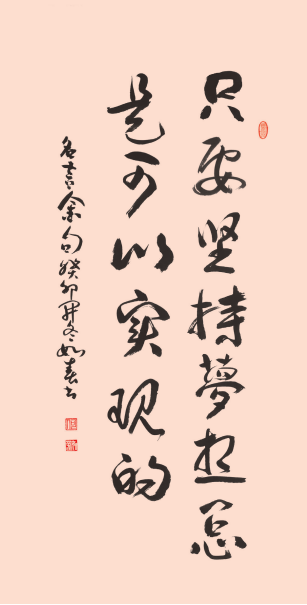 只要坚持夢想总
是可以实现的
名言金句癸卯冬如春书